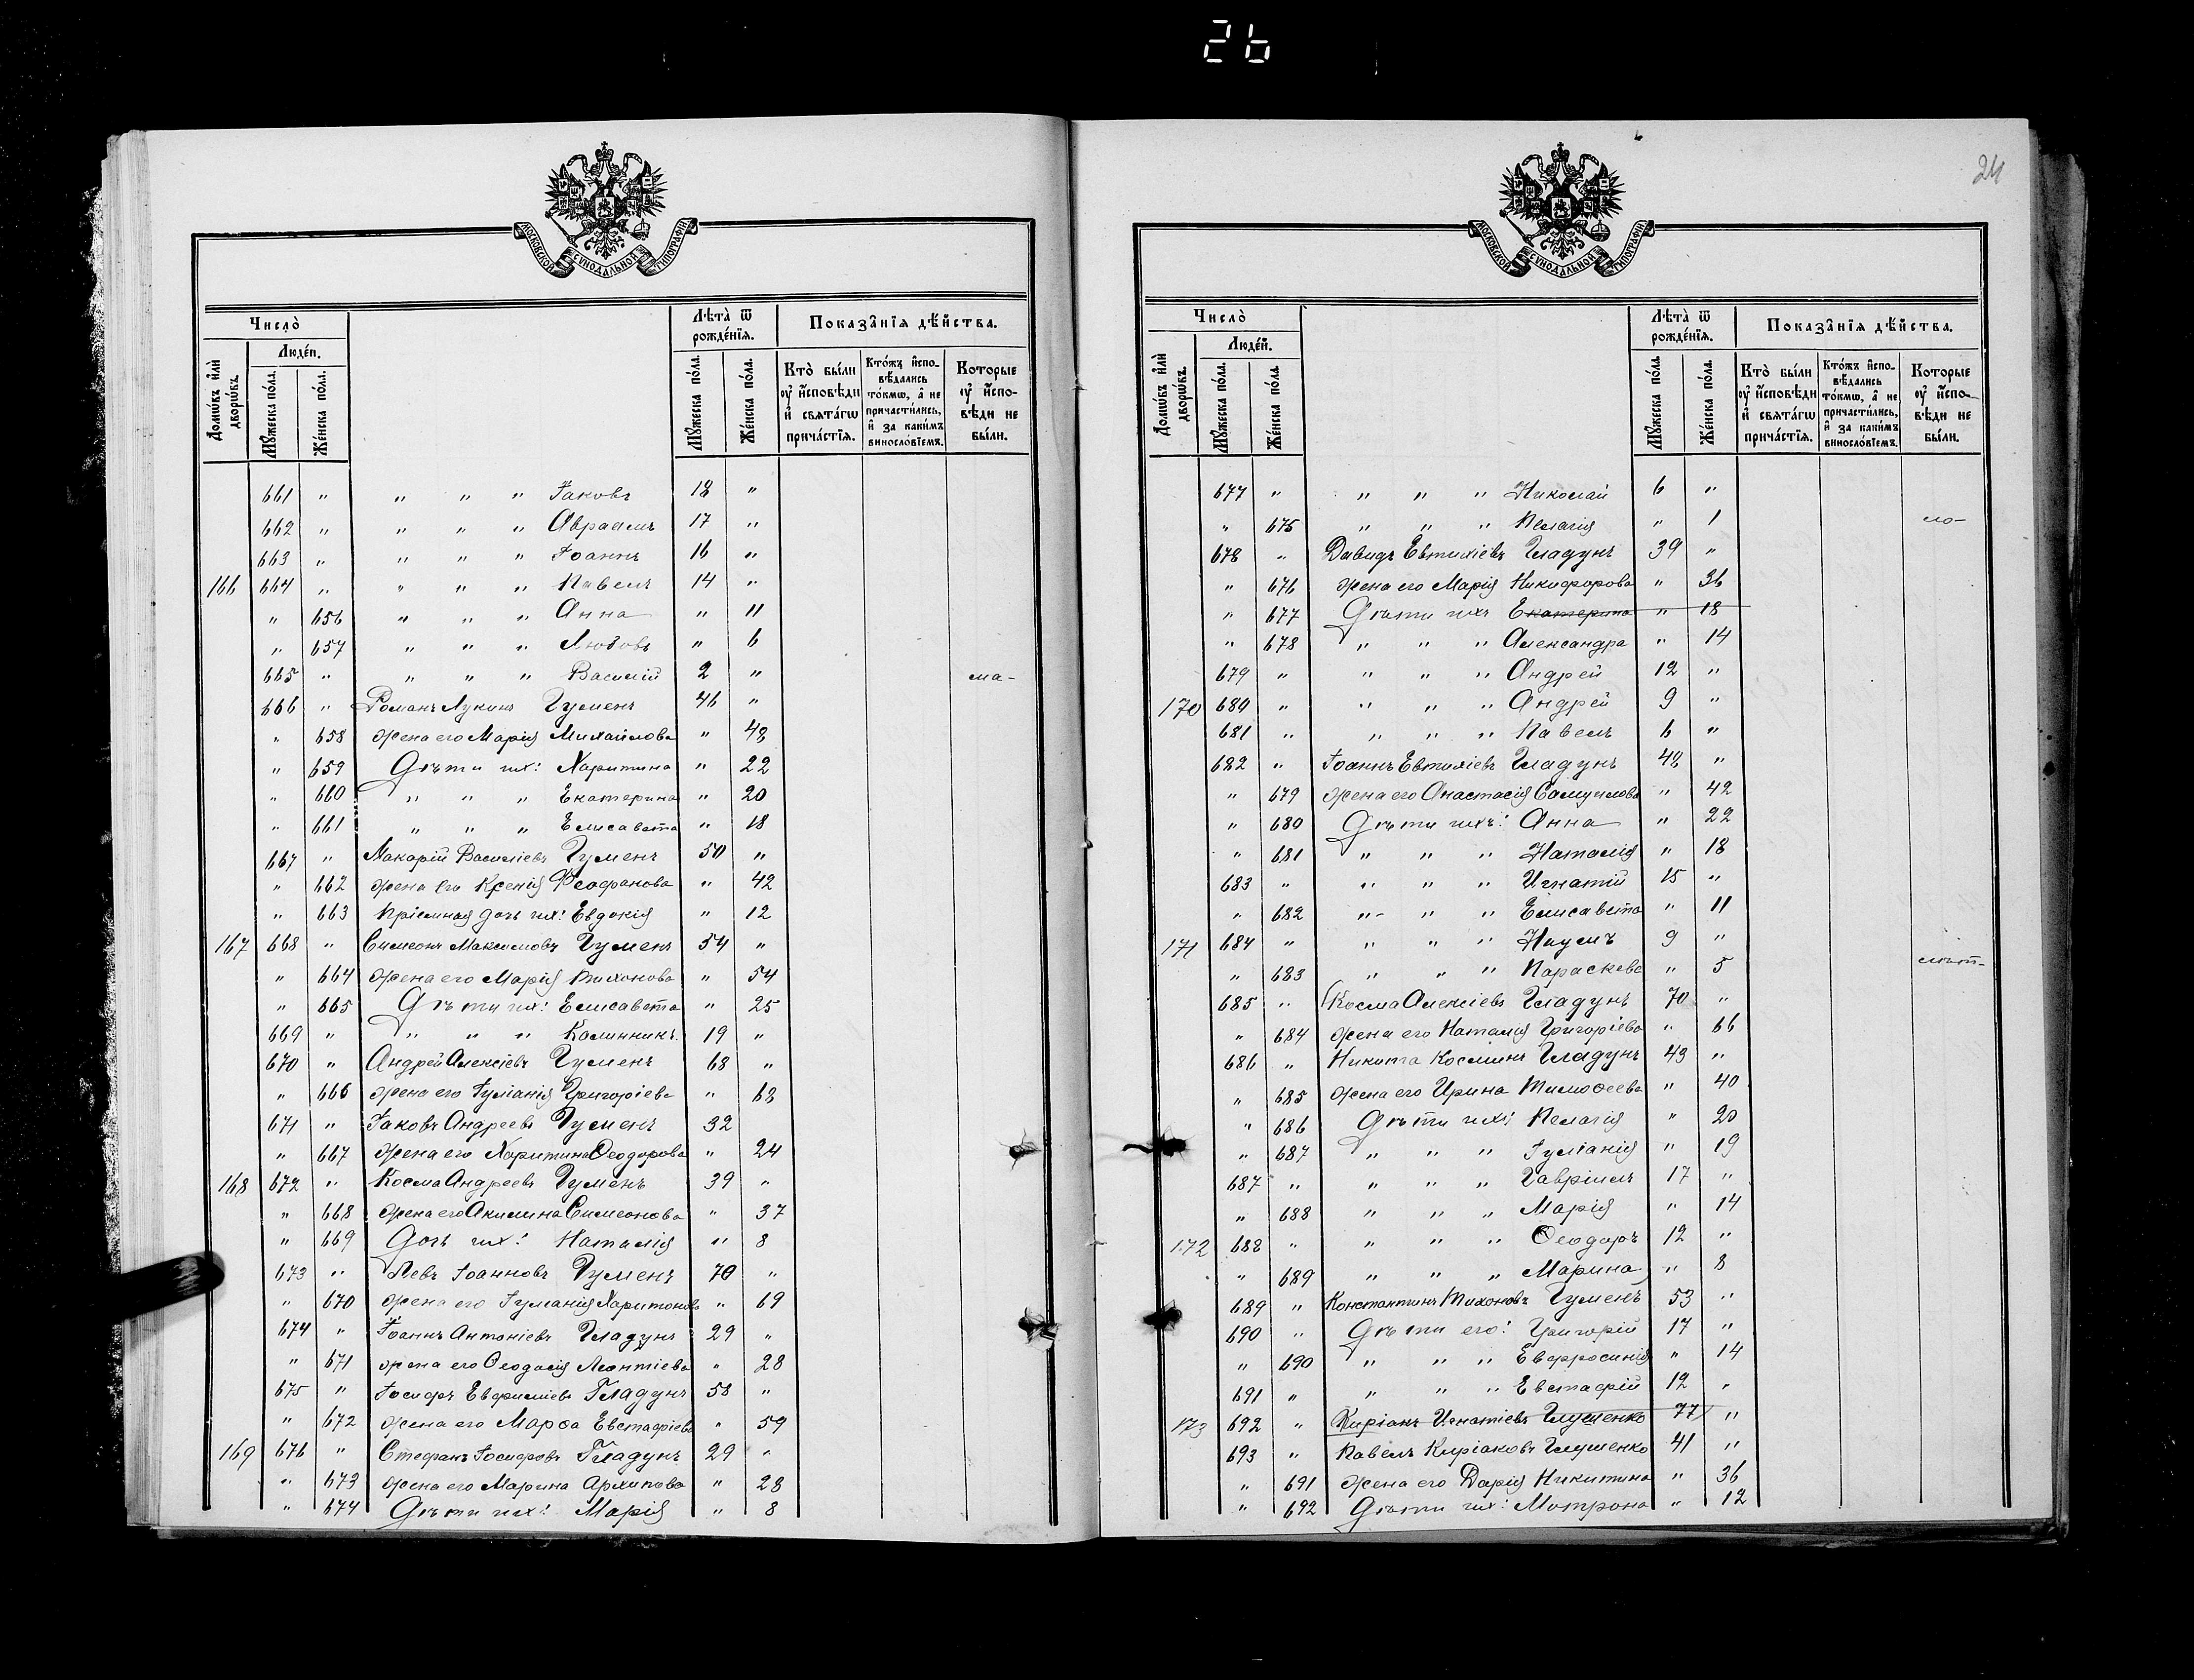 26
МОСКОВСКОЙ СѴНОДАЛЬНОЙ ТИПОГРАФІИ
Число̀
Людéй.
Лѣта̀ ѿ рождéнїя.
Показа̂нїя дѣ́йства.
Домѡ́въ и҆лѝ дворѡ́въ.
Мꙋ́жеска по́ла.
Же́нска по́ла.
Мꙋ́жеска по́ла.
Же́нска по́ла.
Кто̀ бы́ли ᲂу҆ и҆́сповѣди и҆ свѧта́гѡ прича́стїѧ.
Кто́жъ и҆спо-вѣ́дались то́кмѡ, а҆ не причасти́лись, и҆ за каки́мъ винослóвїемъ.
Которые ᲂу҆ и҆́спо-вѣди не бы́ли.
661 " " " " Іаковъ 18 "
662 " " " " Авраамъ 17 "
663 " " " " Іоаннъ 16 "
166 664 " " " " Павелъ 14 "
" 656 " " " Анна " 11
" 657 " " " Любовь " 6
665 " " " " Василій 2 " ма-
666 " Романъ Лукинъ Гуменъ 46 "
" 658 жена его Марія Михайлова " 48
" 659 Дѣти ихъ: Харитина " 22
" 660 " " " Екатерина " 20
" 661 " " " Елисавета " 18
667 " Макарій Василіевъ Гуменъ 50 "
" 662 жена его Ксенія Феофанова " 42
" 663 Пріемная дочь ихъ: Евдокія " 12
167 668 " Симеонъ Максимовъ Гуменъ 54 "
" 664 жена его Марія Тихонова " 54
" 665 Дѣти ихъ: Елисавета " 25
669 " " " " Калинникъ 19 "
670 " Андрей Алексіевъ Гуменъ 68 "
" 666 жена его Іуліанія Григоріева " 68
671 " Іаковъ Андреевъ Гуменъ 32
" 667 жена его Харитина Ѳеодорова " 24
168 672 " Косма Андреевъ Гуменъ 39 "
" 668 жена его Акилина Симеонова " 37
" 669 Дочь ихъ: Наталія " 8
673 " Левъ Іоанновъ Гуменъ 70 "
" 670 жена его Іуліанія Харитонова " 69
674 " Іоаннъ Антоніевъ Гладунъ 29 "
" 671 жена его Ѳеодосія Леонтіева " 28
675 " Іосифъ Евфиміевъ Гладунъ 58 "
" 672 жена его Марѳа Евстафіева " 59
169 676 " Стефанъ Іосифовъ Гладунъ 29 "
" 673 жена его Марина Архипова " 28
" 674 Дѣти ихъ: Марія " 8
24
МОСКОВСКОЙ СѴНОДАЛЬНОЙ ТИПОГРАФІИ
Число̀
Людéй.
Лѣта̀ ѿ рождéнїя.
Показа̂нїя дѣ́йства.
Домѡ́въ и҆лѝ дворѡ́въ.
Мꙋ́жеска по́ла.
Же́нска по́ла.
Мꙋ́жеска по́ла.
Же́нска по́ла.
Кто̀ бы́ли ᲂу҆ и҆́сповѣди и҆ свѧта́гѡ прича́стїѧ.
Кто́жъ и҆спо-вѣ́дались то́кмѡ, а҆ не причасти́лись, и҆ за каки́мъ винослóвїемъ.
Которые ᲂу҆ и҆́спо-вѣди не бы́ли.
677 " " " " Николай 6 "
" 675 " " " Пелагія " 1 ло-
678 " Давидъ Евтихіевъ Гладунъ 39 "
" 676 жена его Марія Никифорова " 36
" 677 Дѣти ихъ Екатерина " 18
" 678 " " " Александра " 14
679 " " " " Андрей 12 "
170 680 " " " " Андрей 9 "
681 " " " " Павелъ 6 "
682 " Іоаннъ Евтихіевъ Гладунъ 48 "
" 679 жена его Анастасія Самуилова " 42
" 680 Дѣти ихъ: Анна " 22
" 681 " " " Наталія " 18
683 " " " " Игнатій 15 "
" 682 " " " Елисавета " 11
171 684 " " " " Наумъ 9 "
" 683 " " " Параскева " 5 лѣт-
685 " Косма Алексіевъ Гладунъ 70 "
" 684 жена его Наталія Григоріева " 66
686 " Никита Косминъ Гладунъ 43 "
" 685 жена его Ирина Тимоѳеева " 40
" 686 Дѣти ихъ: Пелагія " 20
" 687 " " " Іуліанія " 19
687 " " " " Гавріилъ 17 "
" 688 " " " Марія " 14
172 688 " " " " Ѳеодоръ 12 "
" 689 " " " Марина " 8
689 " Константинъ Тихоновъ Гуменъ 53 "
690 " Дѣти его: Григорій 17 "
" 690 " " " Евфросинія " 14
691 " " " " Евстафій 12 "
173 692 " Киріакъ Игнатіевъ Глушенко 77 "
693 " Павелъ Киріаковъ Глушенко 41 "
" 691 жена его Дарія Никитина " 36
" 692 Дѣти ихъ: Мотрона " 12